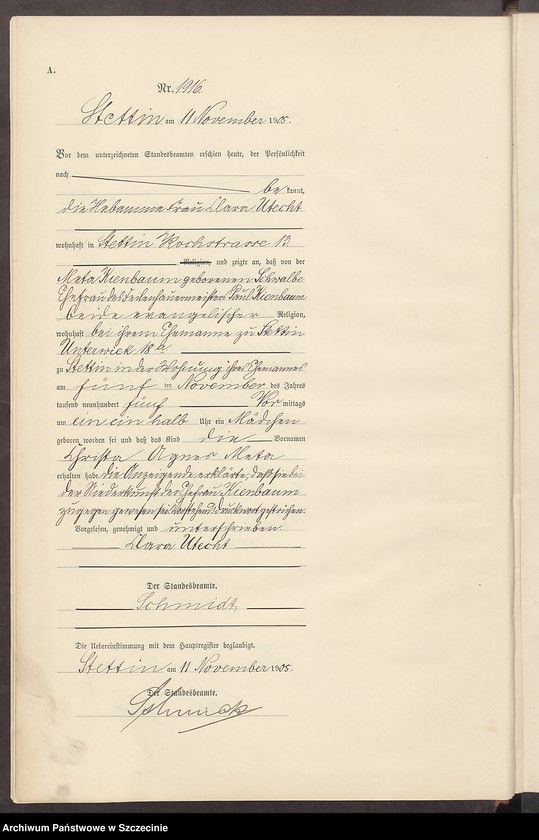 A.
Nr. 1916.
Stettin am 11 November 1905.
Vor dem unterzeichneten Standesbeamten erschien heute, der Persönlichkeit
nach be kannt,
die Hebamme Frau Clara Utecht
wohnhaft in Stettin Kochstrasse 13
Religion, und zeigte an, daß von der
Meta Kienbaum geborenen Schwalbe
Ehefrau des Paul Kienbaum
beide evangelischer Religion,
wohnhaft bei ihrem Ehemanne zu Stettin
Unterwiek 18a
zu Stettin in der Wohnung ihres Ehemannes
am fünf ten November des Jahres
tausend neunhundert fünf Vor mittags
um ein ein halb Uhr ein Mädchen
geboren worden sei und daß das Kind die Vornamen
Christa Agnes Meta
erhalten habe. die Anzeigende erklärte, daß sie bei
der Niederkunft der Ehefrau Kienbaum
zugegen gewesen sei. Vorstehend Druckwort gestrichen.
Vorgelesen, genehmigt und unterschrieben
Clara Utecht
Der Standesbeamte.
Schmidt
Die Uebereinstimmung mit dem Hauptregister beglaubigt.
Stettin am 11 November 1905.
Der Standesbeamte.
Archiwum Państwowe w Szczecinie